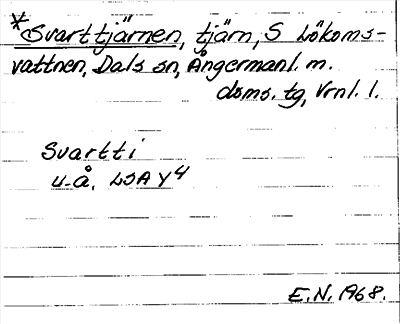 *Svarttjärnen, tjärn, S Lökoms-
vattnen, Dals sn, Ångermanl. m.
doms. tg, Vrnl. l.
Svartti
u.å. LSA Y4
E.N. 1968.